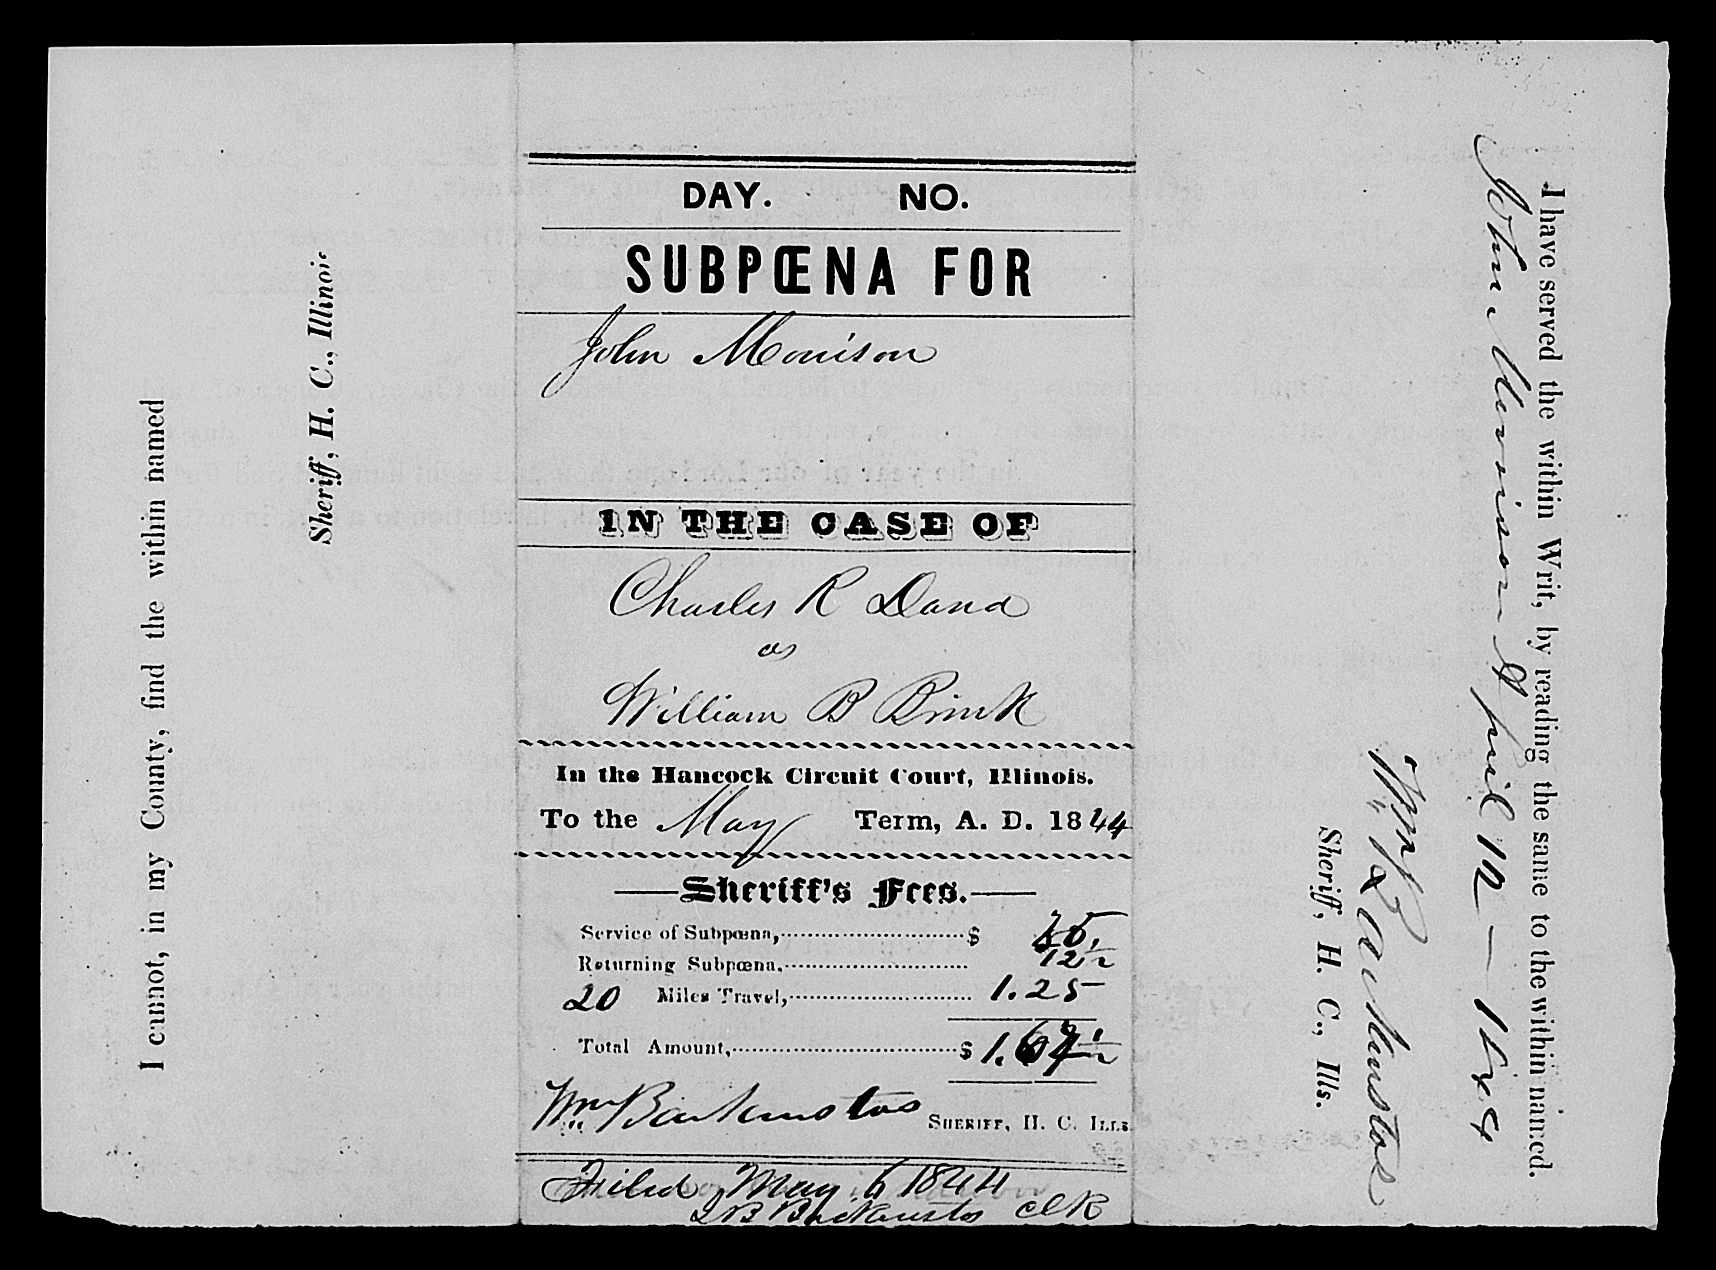 I cannot, in my County, find the within named
Sheriff, H. C., Illinois
DAY. NO.
SUBPŒNA FOR
John Morrison
IN THE CASE OF
Charles R Dana
vs
William B Brink
In the Hancock Circuit Court, Illinois.
To the May Term, A. D. 1844
Sheriff's Fees.
Service of Subpœna, $
Returning Subpœna, 12½
20 Miles Travel, 1.25
Total Amount, $
Wm Backenstos SHERIFF, H. C. ILLS.
Filed May 6 1844
J B Backenstos clk
I have served the within Writ, by reading the same to the within named.
John Morrison April 12 — 1844
Wm Backenstos
Sheriff, H. C., Ills.